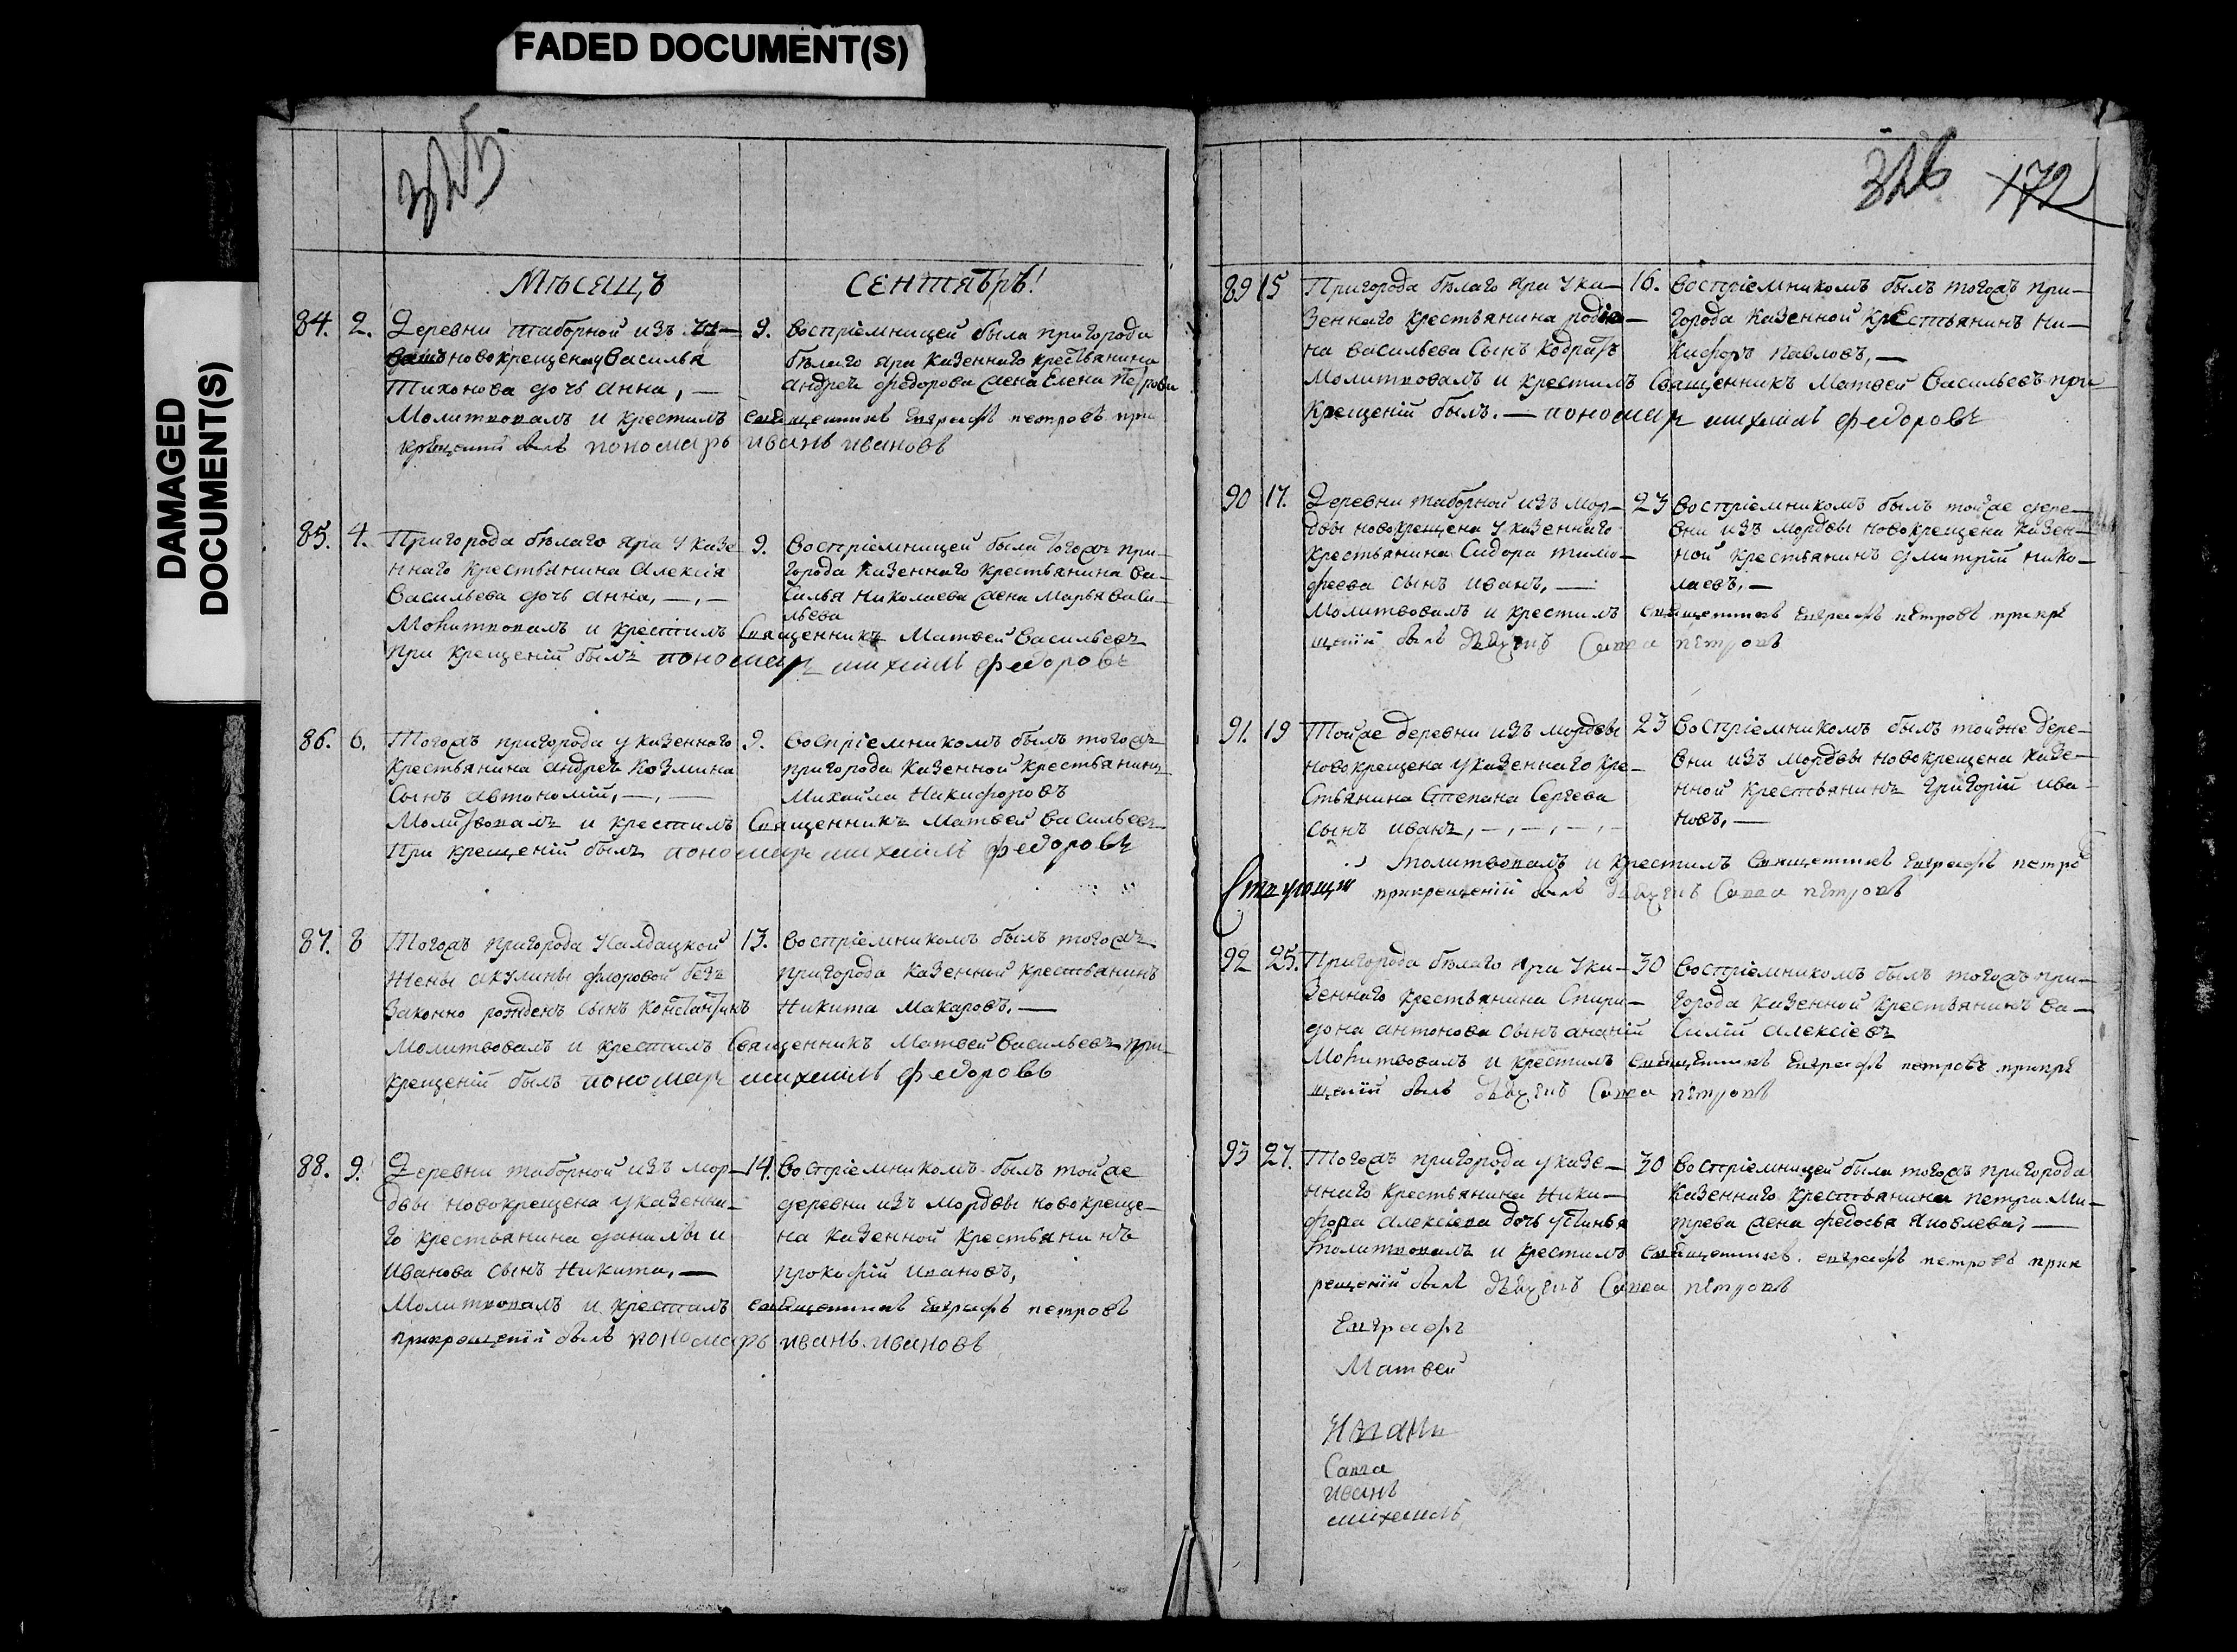 FADED DOCUMENT(S)
DAMAGED
DOCUMENT(S)
325
Мѣсяцъ сентябръ!
84. 2. Деревни таборной изъ чу-
вашъ новокрещена у Василья
Тихонова дочь Анна, —
9. Воспріемницей была пригорода
бѣлаго яра казеннаго крестьянина
андрея федорова жена Елена Петрова
Молитвовалъ и крестилъ священникъ Евграфъ петровъ при
крещении былъ пономарь иванъ ивановъ
85. 4. Пригорода бѣлаго яра у казе
ннаго крестьянина Алексія
Васильева дочь анна, —,—
9. Воспріемницей была тогожъ при-
города казеннаго крестьянина Ва-
силья Николаева жена Марья Васи-
льева
Молитвовалъ и крестилъ Священникъ Матвей Васильевъ
при крещеніи былъ пономаръ михаилъ федоровъ
86. 6. Тогожъ пригорода у казеннаго
крестьянина андрея козмина
Сынъ автономій, —,—
9. Воспріемникомъ былъ тогожъ
пригорода казенной крестьянинъ
Михайла Никифоровъ
Молитвовалъ и крестилъ Священникъ Матвей Васильевъ
При крещеній былъ пономаръ михаилъ федоровъ
87. 8 Тогожъ пригорода у Салдацкой
жены акулины флоровой безъ
законно рожденъ сынъ константинъ
13. Воспріемникомъ былъ тогожъ
пригорода казенной крестьянинъ
Никита Макаровъ, —
Молитвовалъ и крестилъ Священникъ Матвей Васильевъ при-
крещеній былъ пономаръ михаилъ федоровъ
88. 9. Деревни таборной изъ мор-
двы новокрещена у казенна-
го крестьянина данилы и
Иванова сынъ Никита, —
14. Воспріемникомъ былъ тойже
деревни изъ Мордвы новокреще-
на казенной крестьянинъ
прокофій Ивановъ,
Молитвовалъ и крестилъ священникъ Евграфъ петровъ
прикрещеніи былъ пономарь иванъ ивановъ
326 172
89 15 Пригорода бѣлаго яра у ка-
зеннаго крестьянина родіо-
на Васильева Сынъ кодратъ
16. Воспріемникомъ былъ тогожъ при-
города казенной крЕстьянинъ Ни-
кифоръ павловъ, —
Молитвовалъ и крестилъ Священникъ Матвей Васильевъ при
крещеній былъ. — пономаръ михаилъ федоровъ
90 17. Деревни таборной изъ Мор-
двы новокрещена у казеннаго
крестьянина Сидора тимо-
феева сынъ иванъ, —
23 Воспріемникомъ былъ тойже дере-
вни изъ мордвы новокрещена казен-
ной крестьянинъ дмитрій нико-
лаевъ, —
Молитвовалъ и крестилъ священникъ Евграфъ петровъ прикре
щеніи былъ дьячекъ Савва петровъ
91. 19 Тойже деревни изъ мордвы
новокрещена у казеннаго кре-
стьянина Степана Сергеева
сынъ иванъ, —,—,—,—
23 Воспріемникомъ былъ тойже дере-
вни изъ мордвы новокрещена казе-
нной крестьянинъ Григорій ива-
новъ, —
молитвовалъ и крестилъ священникъ Евграфъ петро
прикрещеніи былъ дьячекъ Савва петровъ
92 25. Пригорода бѣлаго яра у ка-
зеннаго крестьянина Спири-
дона антонова сынъ ананій
30 Воспріемникомъ былъ тогожъ при-
города казенной крестьянинъ Ва-
силій алексіевъ
Молитвовалъ и крестилъ священникъ Евграфъ петровъ прикре
щеніи былъ дьячекъ Савва петровъ
93 27. Тогожъ пригорода у казе-
ннаго крестьянина Ники-
фора алексіева дочь устинья
30 Воспріемницей была тогожъ пригорода
казеннаго крестьянина петра Ми-
трева жена федосья яковлева, —
Молитвовалъ и крестилъ священникъ евграфъ петровъ прик
рещеніи былъ дьячекъ Савва петровъ
Евграфъ
Матвей
Савва
иванъ
михаилъ